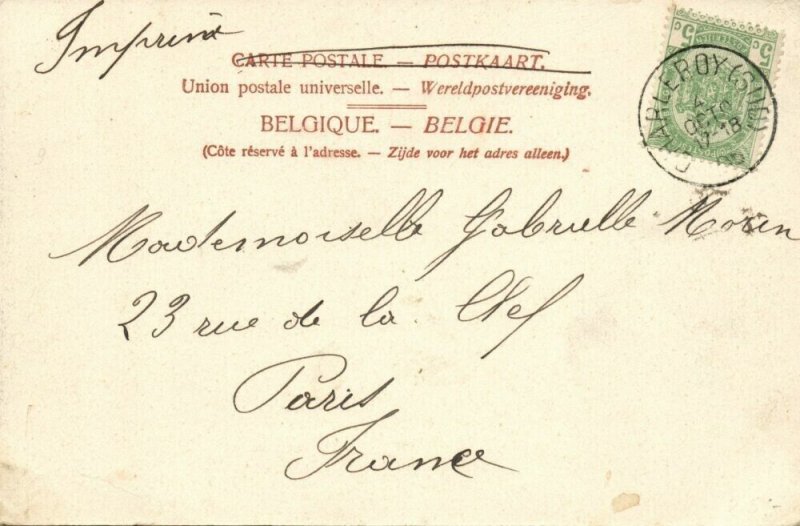 Imprimé
CARTE POSTALE. — POSTKAART.
Union postale universelle. — Wereldpostvereeniging.
BELGIQUE. — BELGIE.
(Côte réservé à l'adresse. — Zijde voor het adres alleen.)
5c 5c
CHARLEROY (SUD)
Mademoiselle Gabrielle Morin
23 rue de la Clef
Paris
France